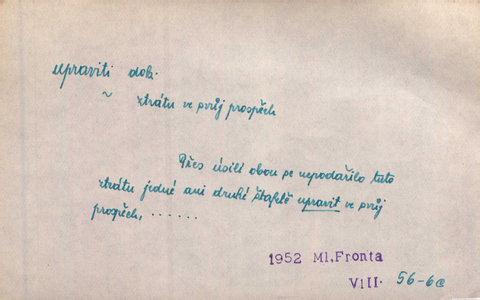 upraviti dok.
~ ztrátu ve svůj prospěch
Přes úsilí obou se nepodařilo tuto
ztrátu jedné ani druhé štafetě upravit ve svůj
prospěch, ......
1952 Ml.Fronta
VIII. 56-6a